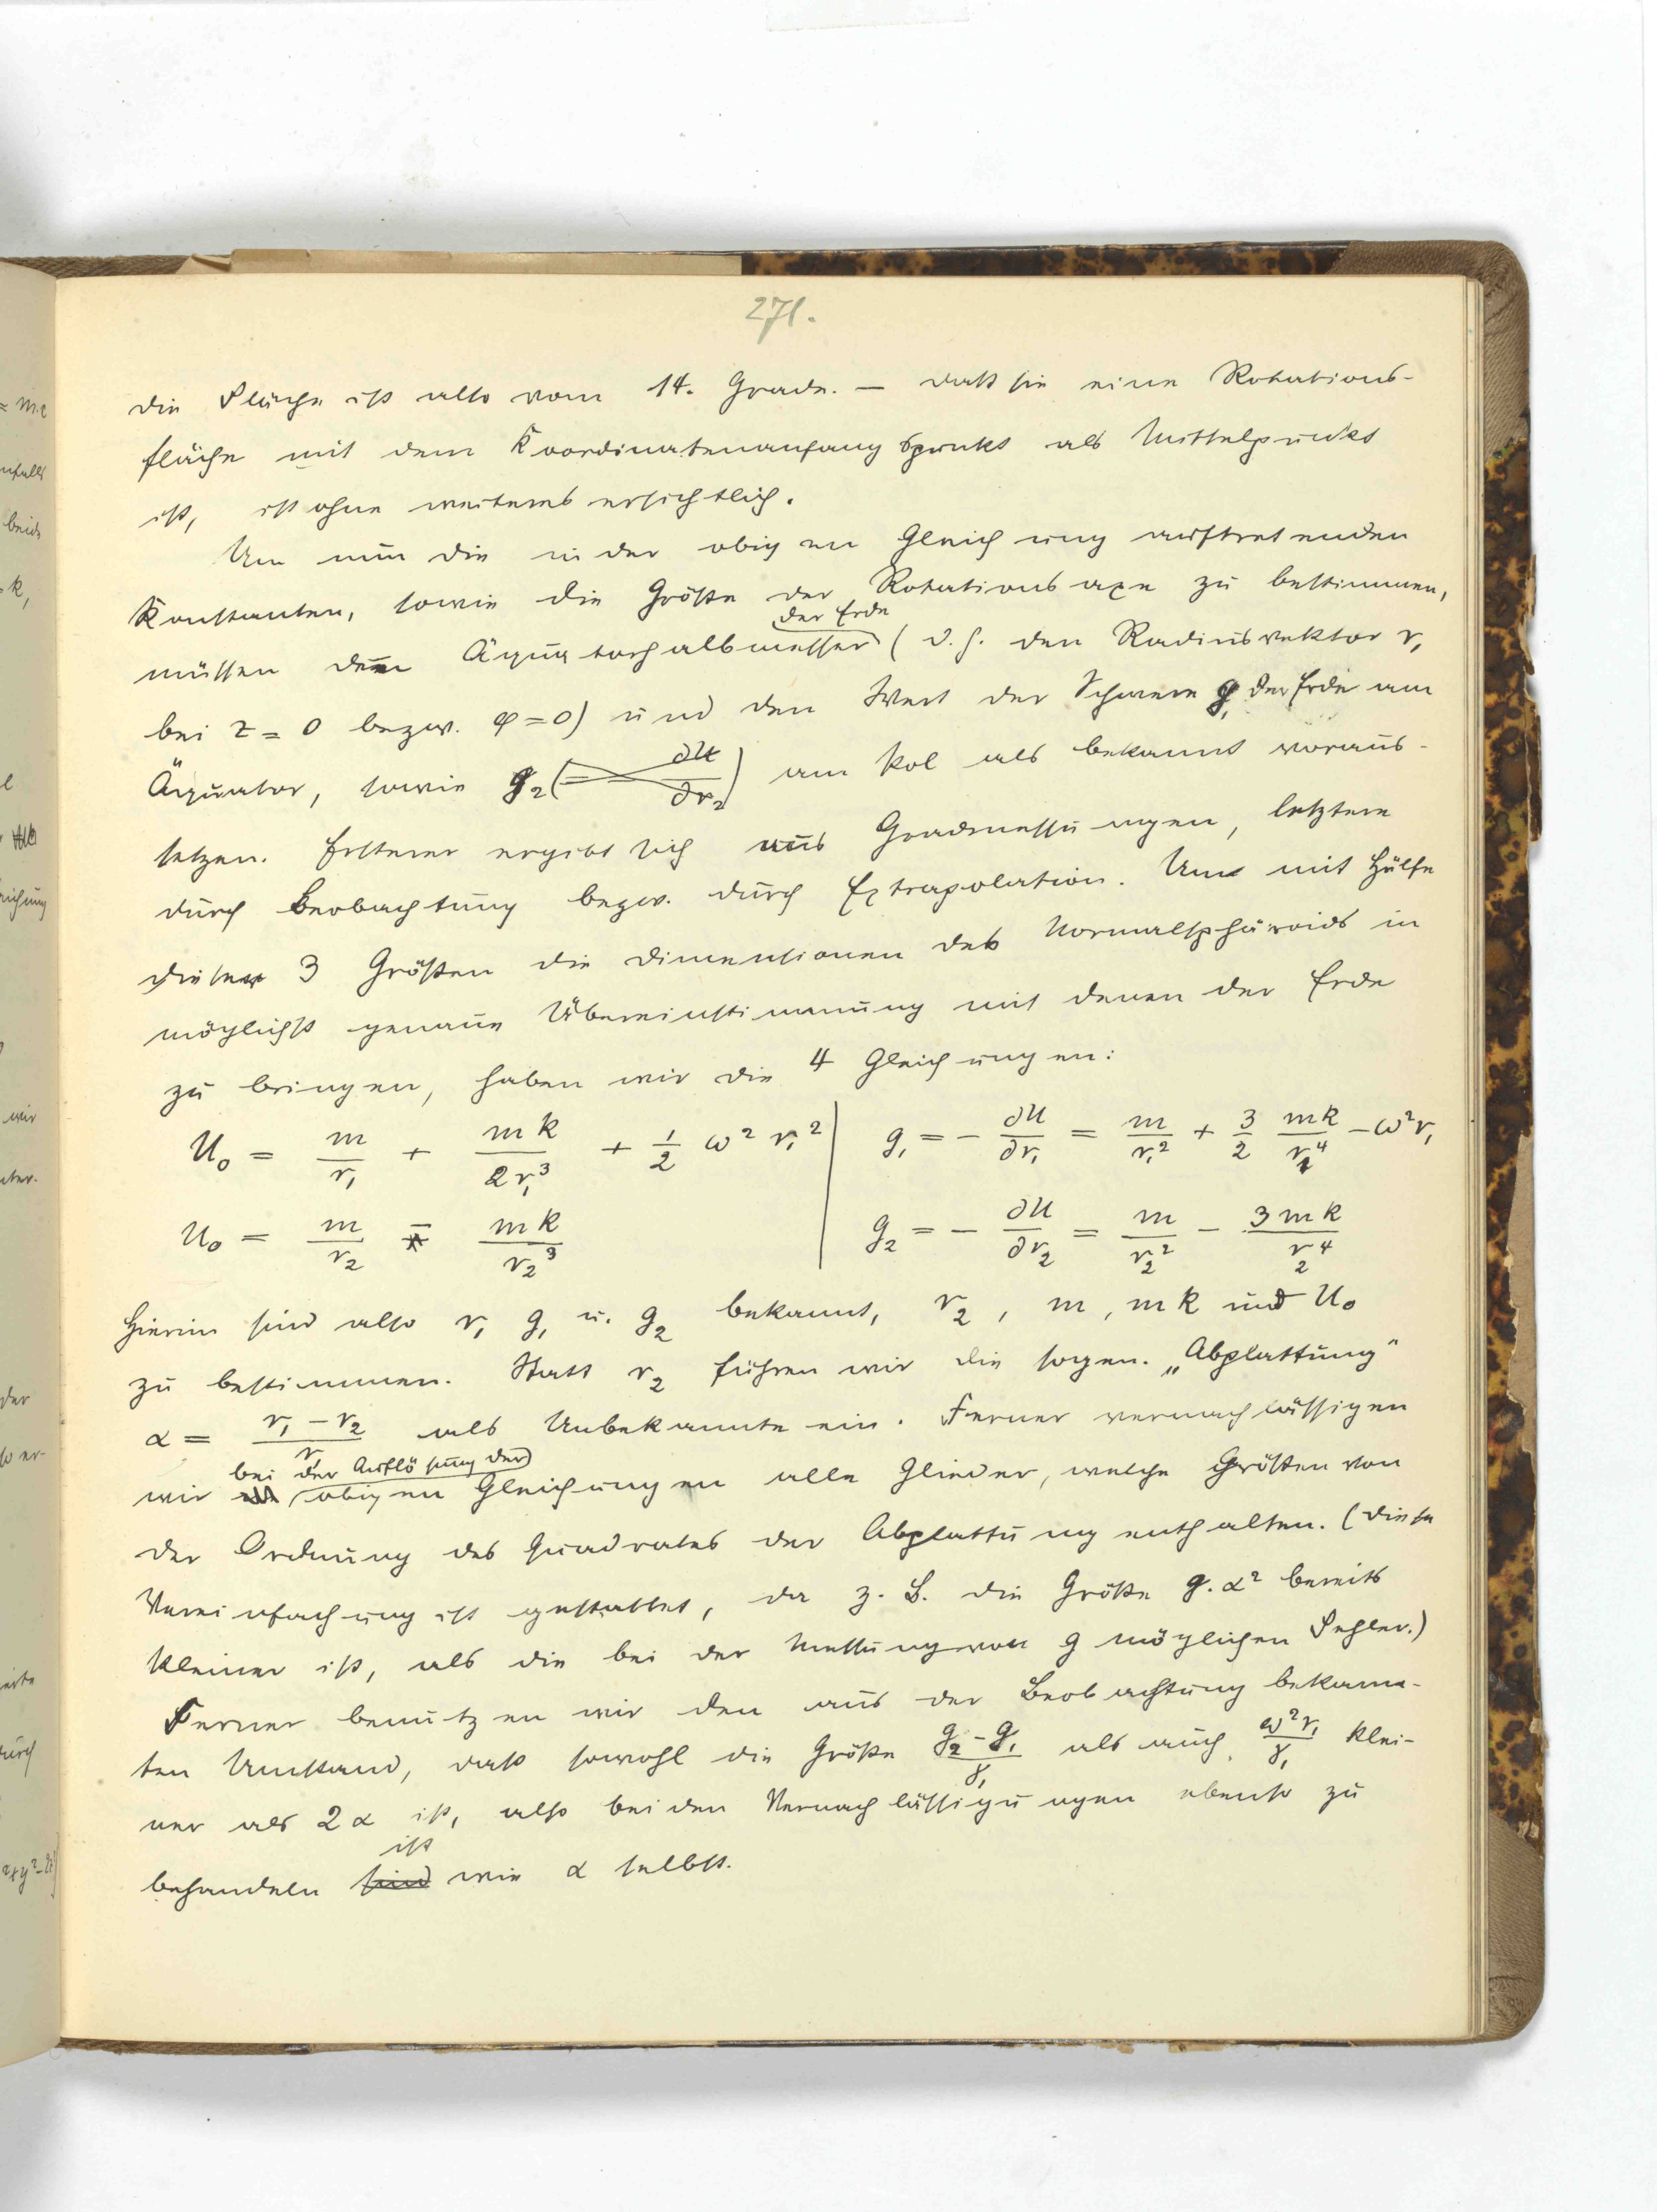 271.
die Fläche ist also vom 14. Grade. — daß sie eine Rotations-
fläche mit dem Koordinatenanfangspunkt als Mittelpunkt
ist, ist ohne weiteres ersichtlich.
Um nun die in der obigen Gleichung auftretenden
Konstanten, sowie die Größe der Rotationsaxe zu bestimmen,
der Erde
müssen den Äquatorhalbmesser (d.h. den Radiusvektor r₁
bei z = 0 bezw. φ = 0) und den Wert der Schwere g₁ der Erde am
Äquator, sowie g₂ (= ∂U/∂r₂) am Pol als bekannt voraus-
setzen. Ersterer ergibt sich aus Gradmessungen, letztere
durch Beobachtung bezw. durch Extrapolation. Um mit Hülfe
dieser 3 Größen die Dimensionen des Normalsphäroids in
möglichst genaue Übereinstimmung mit denen der Erde
zu bringen, haben wir die 4 Gleichungen:
U₀ = m/r₁ + mk/2r₁³ + 1/2 ω² r₁² | g₁ = − ∂U/∂r₁ = m/r₁² + 3/2 mk/r₁⁴ − ω²r₁
U₀ = m/r₂ − mk/r₂³ | g₂ = − ∂U/∂r₂ = m/r₂² − 3mk/r₂⁴
Hierin sind also r₁ g₁ u. g₂ bekannt, r₂, m, mk und U₀
zu bestimmen. Statt r₂ führen wir die sogen. „Abplattung"
α = r₁ − r₂/r₁ als Unbekannte ein. Ferner vernachlässigen
bei der Auflösung der
wir obigen Gleichungen alle Glieder, welche Größen von
der Ordnung des Quadrates der Abplattung enthalten. (Diese
Vereinfachung ist gestattet, da z. B. die Größe g. α² bereits
kleiner ist, als die bei der Messung von g möglichen Fehler.)
Ferner benutzen wir den aus der Beobachtung bekann-
ten Umstand, daß sowohl die Größe g₂ − g₁/γ₁ als auch ω²r₁/γ₁ klei-
ner als 2α ist, also bei den Vernachlässigungen ebenso zu
ist
behandeln sind wie α selbst.